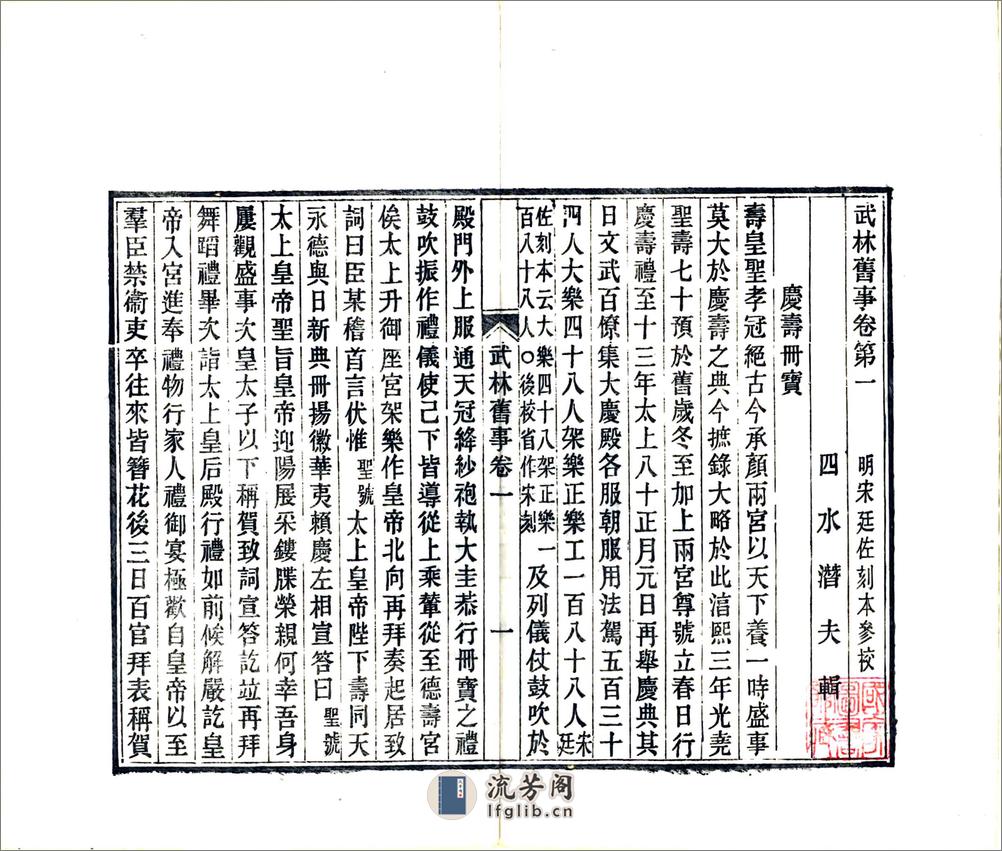 武林舊事卷第一　明宋廷佐刻本參校
四水潛夫輯
慶壽冊寶
壽皇聖孝冠絕古今承顏兩宮以天下養一時盛事
莫大於慶壽之典今摭錄大略於此淳熙三年光堯
聖壽七十預於舊歲冬至加上兩宮尊號立春日行
慶壽禮至十三年太上八十正月元日再舉慶典其
日文武百僚集大慶殿各服朝服用法駕五百三十
四人大樂四十八人架樂正樂工一百八十八人宋廷
佐刻本云大樂四十八架正樂一
百八十八人○後校省作宋刻
及列儀仗鼓吹於
武林舊事卷一　一
殿門外上服通天冠絳紗袍執大圭恭行冊寶之禮
鼓吹振作禮儀使已下皆導從上乘輦從至德壽宮
俟太上升御座宮架樂作皇帝北向再拜奏起居致
詞曰臣某稽首言伏惟聖號太上皇帝陛下壽同天
永德與日新典冊揚徽華夷賴慶左相宣答曰聖號
太上皇帝聖旨皇帝迎陽展采鏤牒榮親何幸吾身
屢觀盛事次皇太子以下稱賀致詞宣答訖竝再拜
舞蹈禮畢次詣太上皇后殿行禮如前候解嚴訖皇
帝入宮進奉禮物行家人禮御宴極歡自皇帝以至
羣臣禁衞吏卒往來皆簪花後三日百官拜表稱賀
流芳阁
lfglib.cn